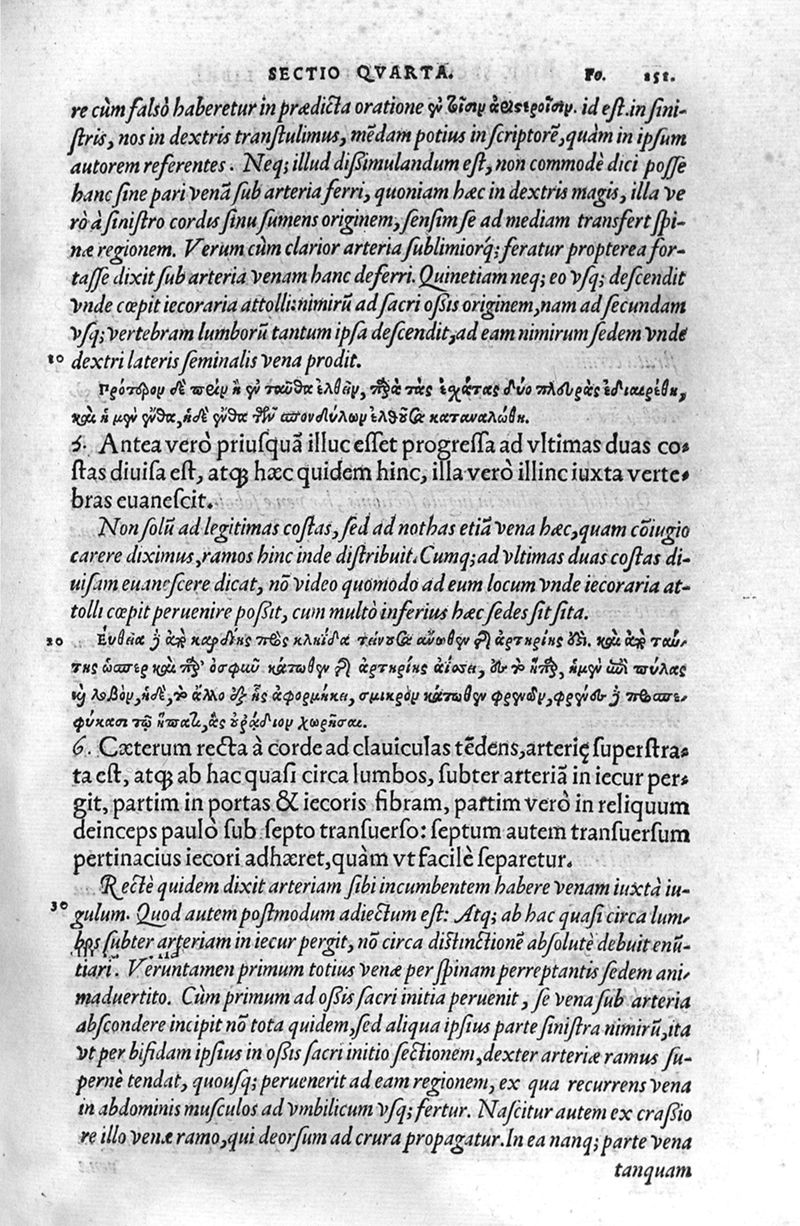 SECTIO QVARTA. Fo. 151.
re cùm falsò haberetur in prædicta oratione id est. in sini-
stris, nos in dextris transtulimus, mēdam potius in scriptorē, quàm in ipsum
autorem referentes. Neq; illud dissimulandum est, non commodè dici posse
hanc sine pari venā sub arteria ferri, quoniam hæc in dextris magis, illa ve
rò à sinistro cordis sinu sumens originem, sensim se ad mediam transfert spi-
næ regionem. Verum cùm clarior arteria sublimiorq́; feratur propterea for-
tasse dixit sub arteria venam hanc deferri. Quinetiam neq; eo vsq; descendit
vnde cœpit iecoraria attolli: nimirū ad sacri ossis originem, nam ad secundam
vsq; vertebram lumborū tantum ipsa descendit, ad eam nimirum sedem vnde
10 dextri lateris seminalis vena prodit.
Πρότερον δὲ πρὶν ἢ ἐνταῦθα ἐλθεῖν, παρὰ τὰς ἐχάτας δύο πλευρὰς ἐδιαιρέθη,
καὶ ἡ μὲν ἔνθα, ἡ δὲ ἔνθα τῶν σπονδύλων ἐλθοῦσα καταναλώθη.
5. Antea verò priusquā illuc esset progressa ad vltimas duas co-
stas diuisa est, atq; hæc quidem hinc, illa verò illinc iuxta verte-
bras euanescit.
Non solū ad legitimas costas, sed ad nothas etiā vena hæc, quam cōiugio
carere diximus, ramos hinc inde distribuit. Cumq; ad vltimas duas costas di-
uisam euanescere dicat, nō video quomodo ad eum locum vnde iecoraria at-
tolli cœpit peruenire possit, cum multò inferius hæc sedes sit sita.
20 καρδίης κληΐδα τείνουσα ἄνωθεν ἀρτηρίης καὶ ἀπὸ ταύ-
της ὥσπερ καὶ ὀσφῦν κάτωθεν ἀρτηρίης πύλας
λοβὸν, ἡ δὲ, ἄλλο σμικρὸν κάτωθεν φρενῶν, προσπε-
φύκασι τῷ ἥπατι, χωρῆσαι.
6. Cæterum recta à corde ad clauiculas tēdens, arterię superstra-
ta est, atq; ab hac quasi circa lumbos, subter arteriā in iecur per-
git, partim in portas & iecoris fibram, partim verò in reliquum
deinceps paulò sub septo transuerso: septum autem transuersum
pertinacius iecori adhæret, quàm vt facilè separetur.
Rectè quidem dixit arteriam sibi incumbentem habere venam iuxtà iu-
30 gulum. Quod autem postmodum adiectum est: Atq; ab hac quasi circa lum-
bos subter arteriam in iecur pergit, nō circa distinctionē absolutè debuit enū-
tiari. Veruntamen primum totius venæ per spinam perreptantis sedem ani
maduertito. Cùm primum ad ossis sacri initia peruenit, se vena sub arteria
abscondere incipit nō tota quidem, sed aliqua ipsius parte sinistra nimirū, ita
vt per bifidam ipsius in ossis sacri initio sectionem, dexter arteriæ ramus su-
pernè tendat, quousq; peruenerit ad eam regionem, ex qua recurrens vena
in abdominis musculos ad vmbilicum vsq; fertur. Nascitur autem ex crassio
re illo venæ ramo, qui deorsum ad crura propagatur. In ea nanq; parte vena
tanquam